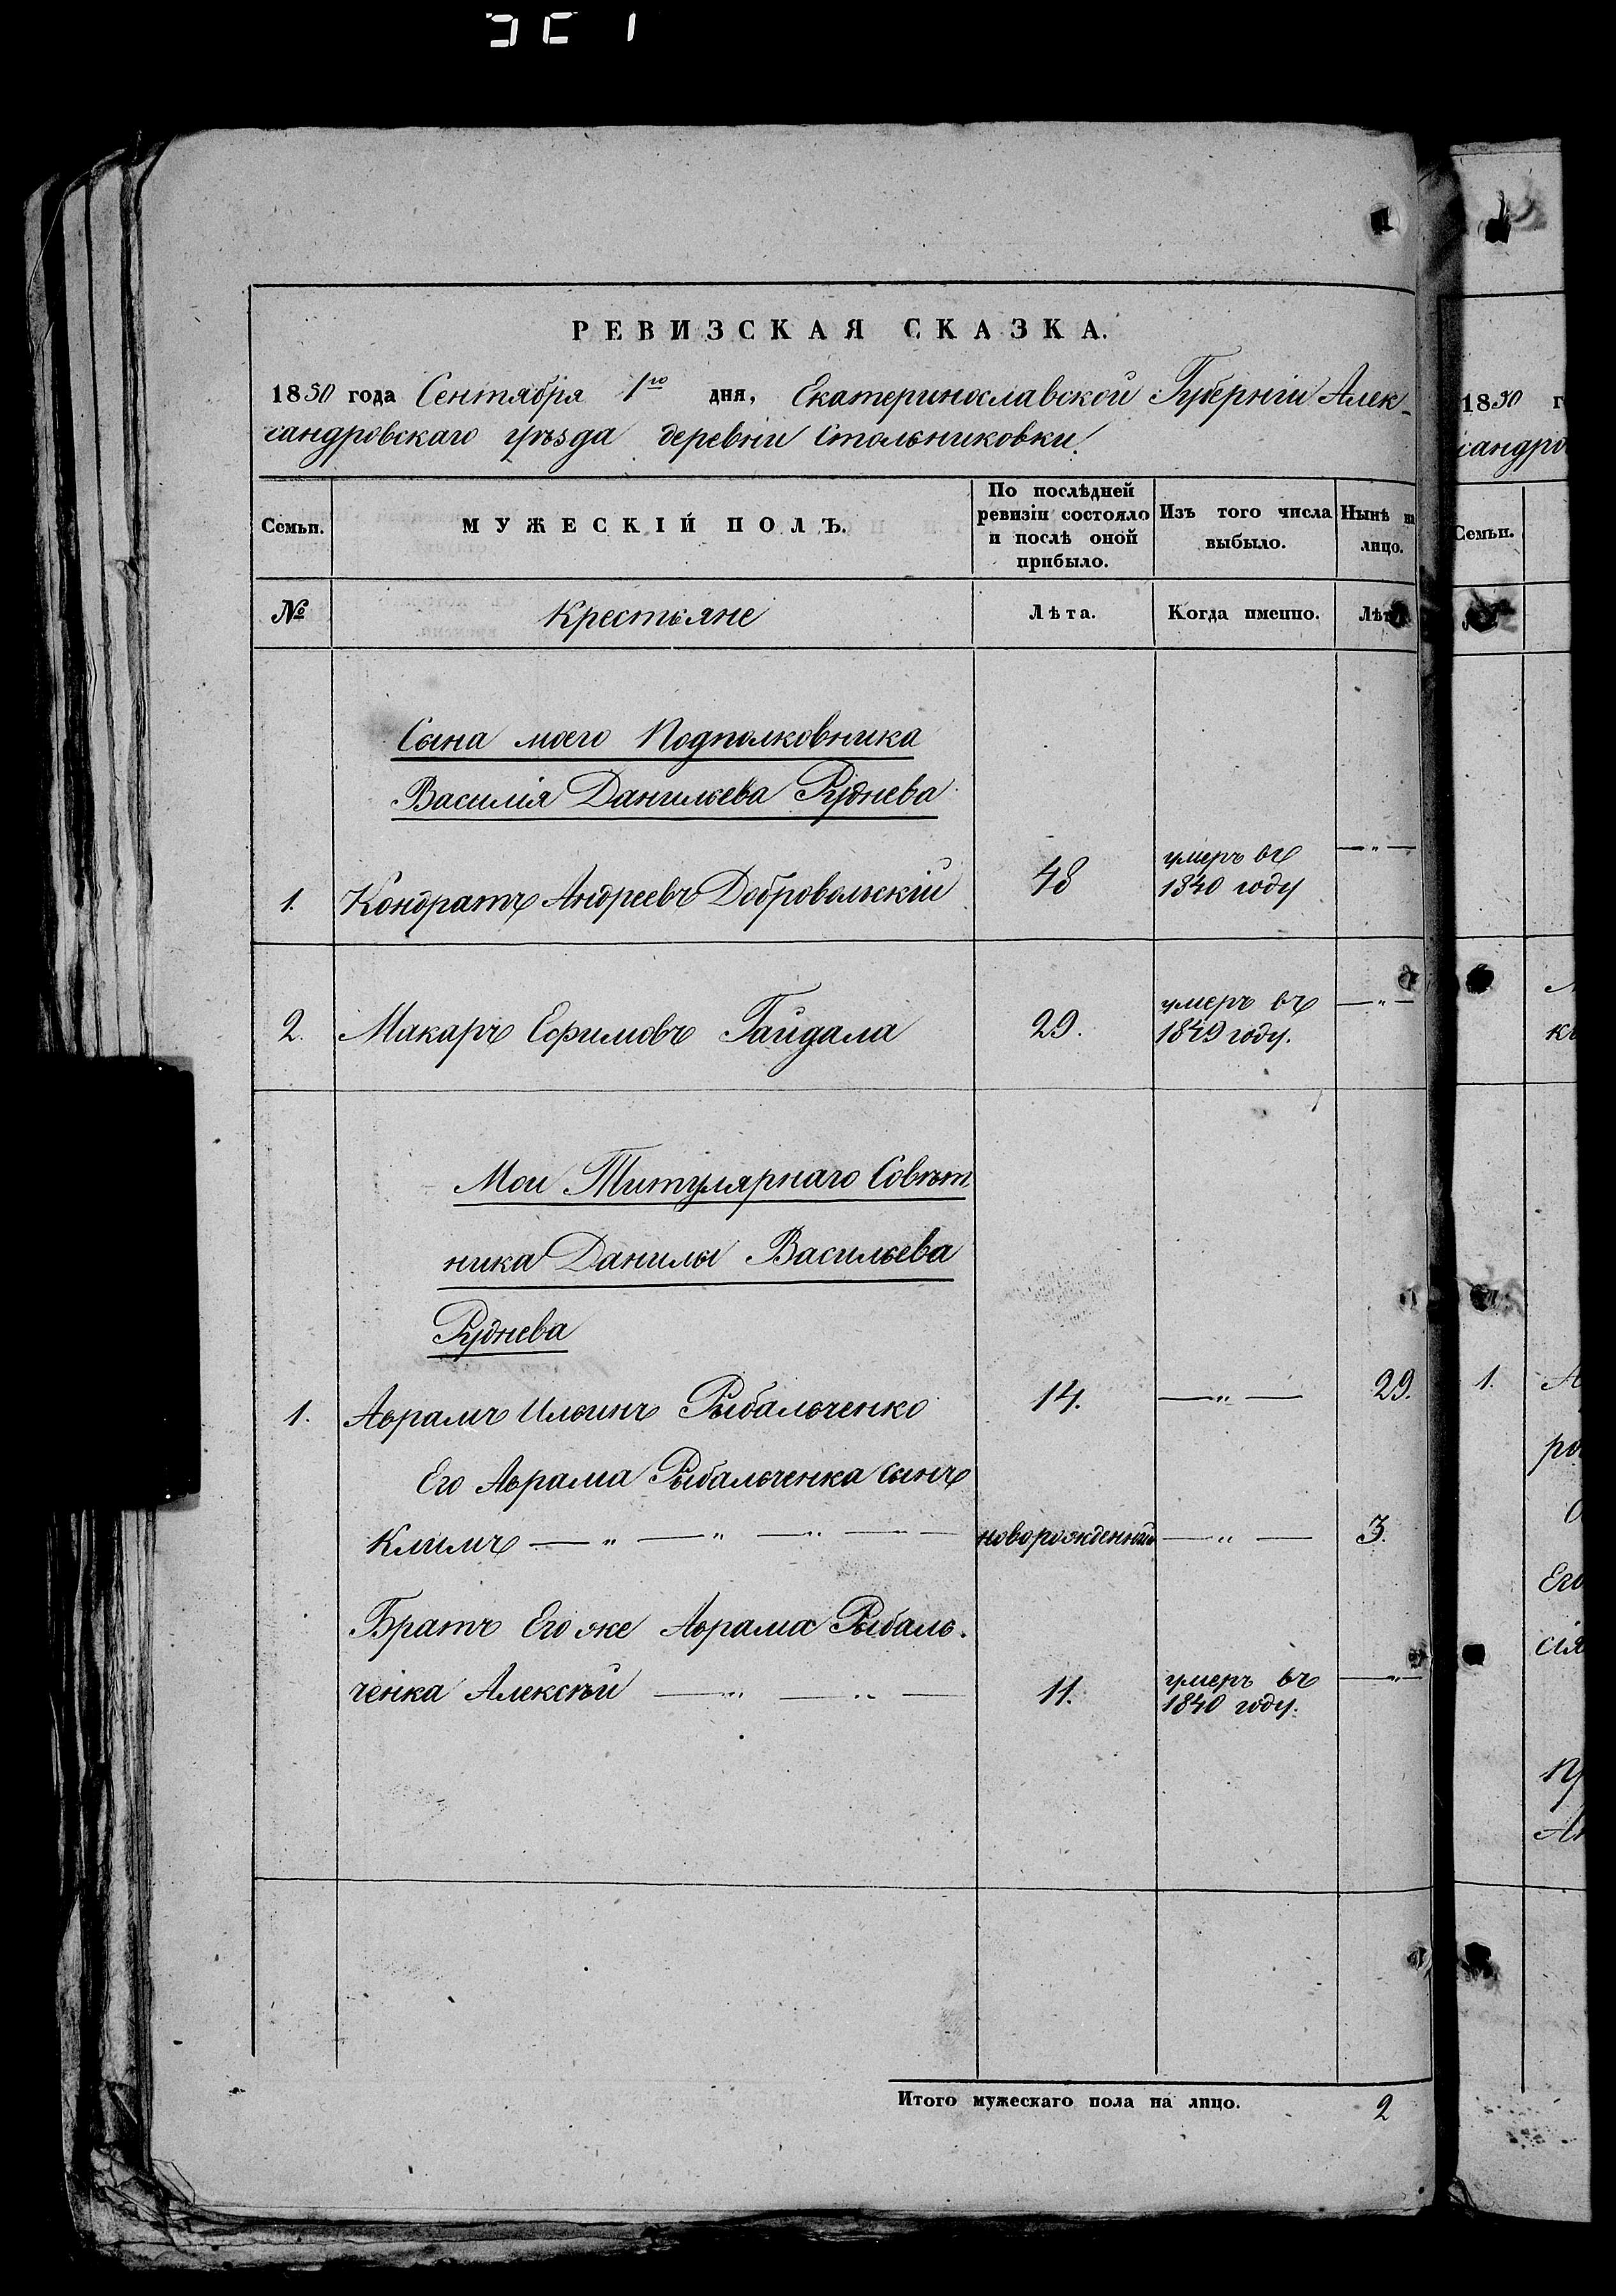 РЕВИЗСКАЯ СКАЗКА.
1850 года Сентября 1го дня, Екатеринославской Губерніи Алек-
сандровскаго уѣзда деревни Стольниковки.
Семьи.
МУЖЕСКІЙ ПОЛЪ.
По послѣдней ревизіи состояло и послѣ оной прибыло.
Изъ того числа выбыло.
Нынѣ на лицо.
№
Крестьяне
Лѣта.
Когда именно.
Лѣта
Сына моего Подполковника
Василія Данильева Руднева
1. Кондратъ Андреевъ Добровольскій 48 умеръ въ 1840 году —〃—
2. Макаръ Ефимовъ Гайдала 29. умеръ въ 1849 году. —〃—
Мои Титулярнаго Совѣт
ника Данилы Васильева
Руднева
1. Аврамъ Ильинъ Рыбальченко 14. —〃— 29.
Его Аврама Рыбальченка сынъ
Климъ —〃—〃—〃— новорожденный —〃— 3.
Братъ Его же Аврама Рыбаль-
ченка Алексѣй —〃—〃— 11. умеръ въ 1840 году. —〃—
Итого мужескаго пола на лицо. 2
1850 г
сандро
Семьи.
1.
Его
сія